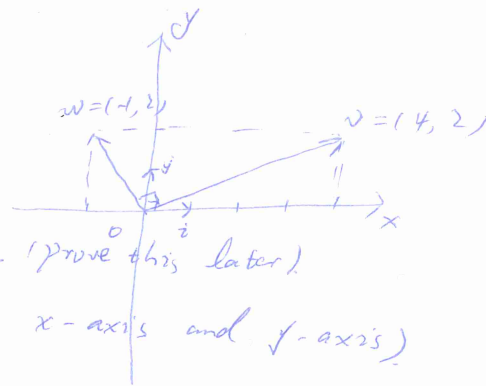 y
w=(-1,2)
v=(4,2)
j
0 i x
. (prove this later).
x-axis and y-axis)